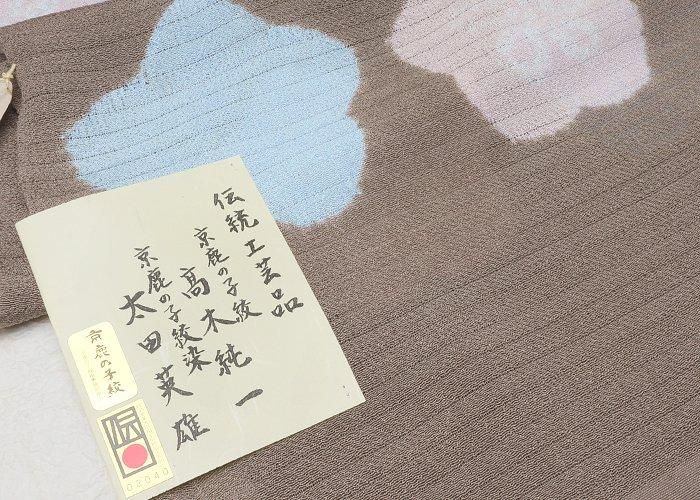 伝統工芸品
京鹿の子絞
高木純一
京鹿の子絞染
太田英雄
京鹿の子絞
伝
02040